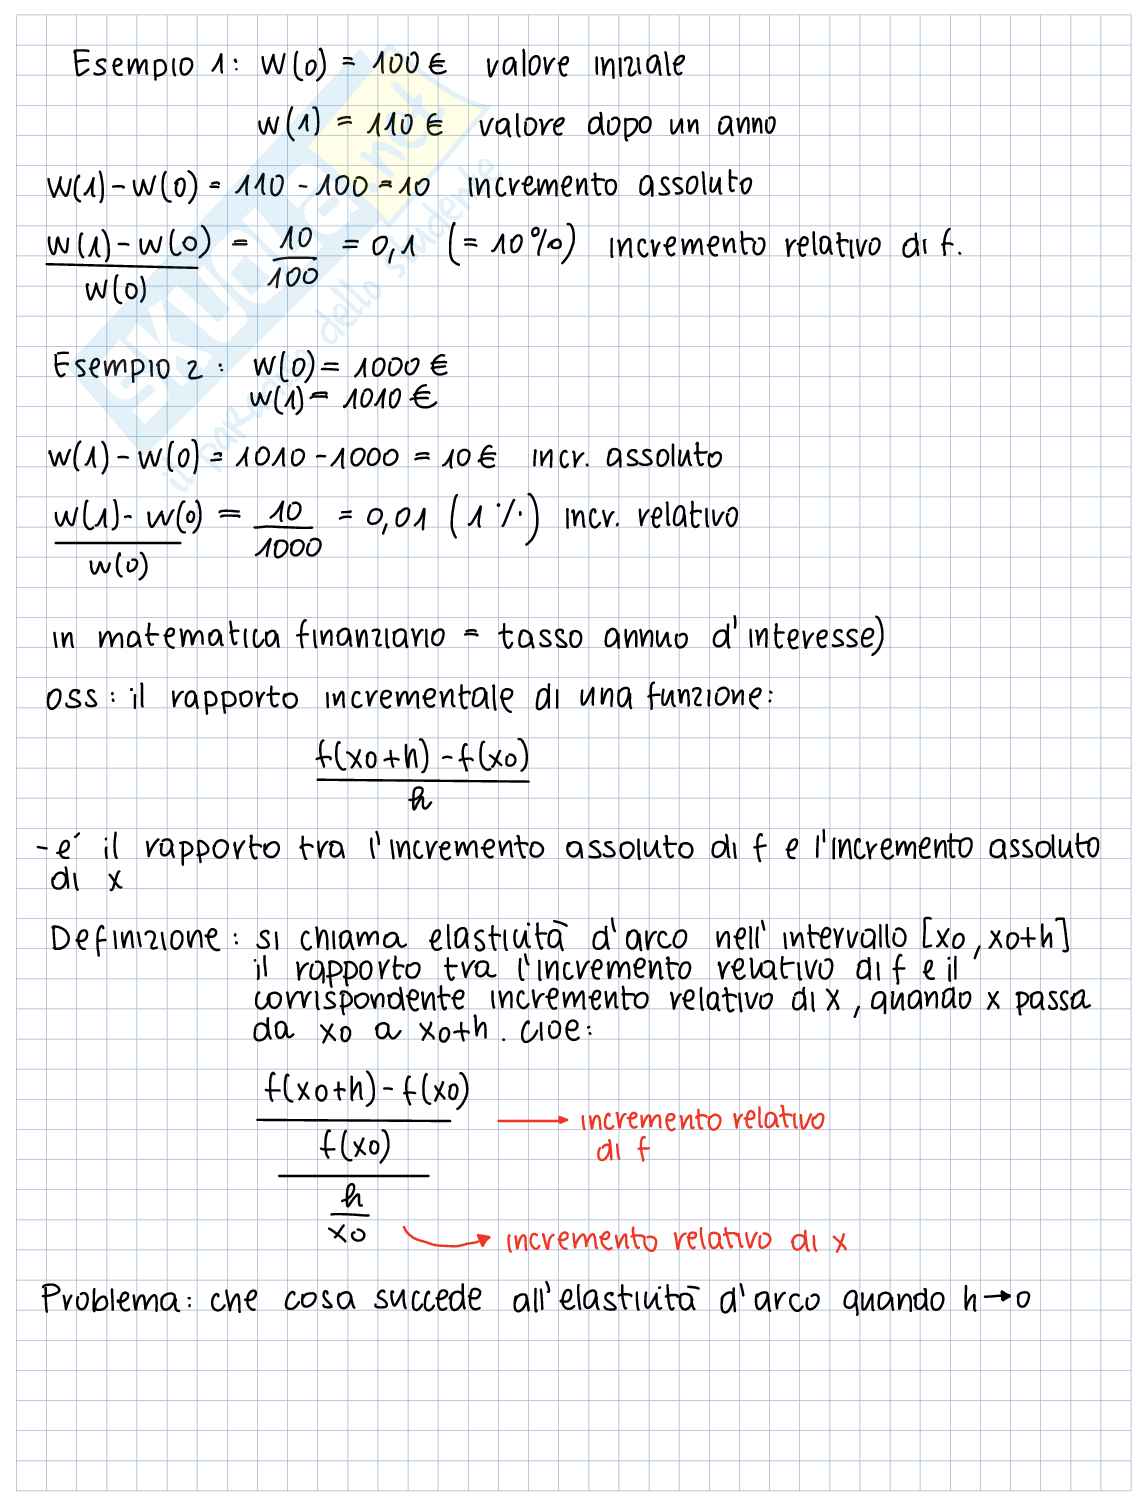 Esempio 1: W(0) = 100 € valore iniziale
W(1) = 110 € valore dopo un anno
W(1) - W(0) = 110 - 100 = 10 incremento assoluto
W(1) - W(0) = 10 = 0,1 (= 10%) incremento relativo di f.
W(0) 100
Esempio 2: W(0) = 1000 €
W(1) = 1010 €
W(1) - W(0) = 1010 - 1000 = 10 € incr. assoluto
W(1) - W(0) = 10 = 0,01 (1 %) incr. relativo
W(0) 1000
in matematica finanziario = tasso annuo d'interesse)
oss: il rapporto incrementale di una funzione:
f(x0+h) - f(x0)
h
- e' il rapporto tra l'incremento assoluto di f e l'incremento assoluto
di x
Definizione: si chiama elasticità d'arco nell'intervallo [x0, x0+h]
il rapporto tra l'incremento relativo di f e il
corrispondente incremento relativo di x, quando x passa
da x0 a x0+h. cioe:
f(x0+h) - f(x0)
f(x0)
→ incremento relativo
di f
h
x0
→ incremento relativo di x
Problema: che cosa succede all'elasticità d'arco quando h→0
SKUOLA.net
il paradiso dello studente